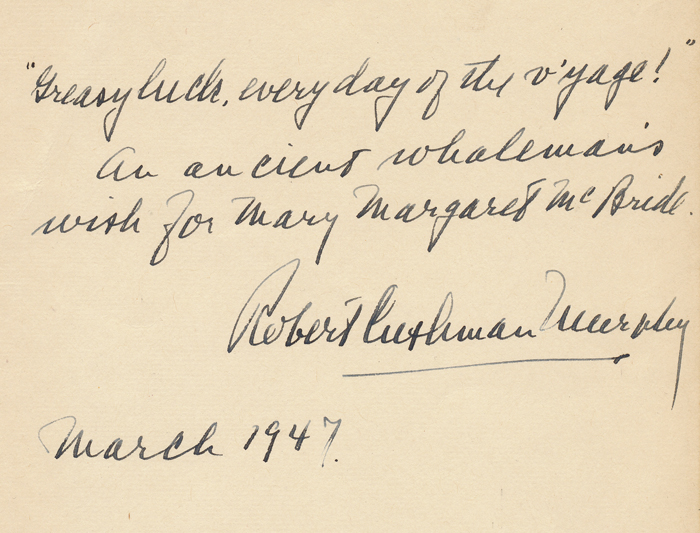 "Greasy luck, every day of the v'yage!"
An ancient whaleman's
wish for Mary Margaret McBride.
Robert Cushman Murphy
March 1947.